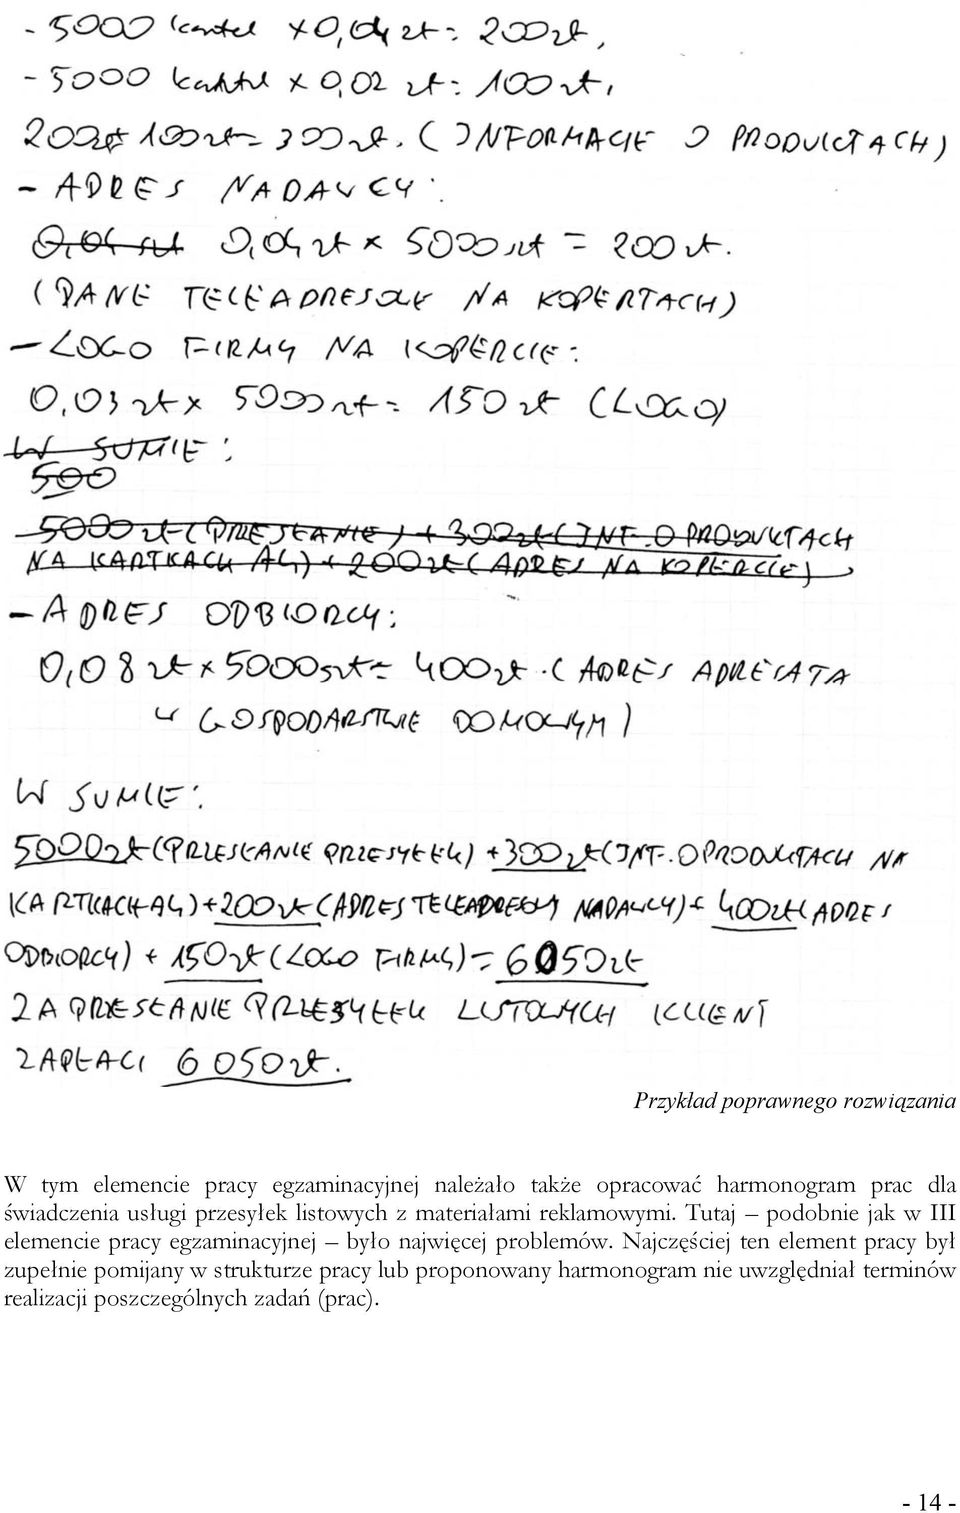 - 5000 kartek x 0,04 zł = 200 zł,
- 5000 kartek x 0,02 zł = 100 zł,
200zł 100zł = 300zł. (INFORMACJE O PRODUKTACH)
- ADRES NADAWCY:
0,04 szt 0,04 zł x 5000 szt = 200 zł.
(DANE TELEADRESOWE NA KOPERTACH)
- LOGO FIRMY NA KOPERCIE:
0,03 zł x 5000 szt = 150 zł (LOGO)
W SUMIE:
500
5000 zł (PRZESŁANIE) + 300zł (INF. O PRODUKTACH
NA KARTKACH A4) + 200zł (ADRES NA KOPERCIE),
- ADRES ODBIORCY:
0,08 zł x 5000szt = 400zł. (ADRES ADRESATA
W GOSPODARSTWIE DOMOWYM)
W SUMIE:
5000zł (PRZESŁANIE PRZESYŁEK) + 300 zł (INF. O PRODUKTACH NA
KARTKACH A4) + 200zł (ADRES TELEADRESOWY NADAWCY) + 400zł (ADRES
ODBIORCY) + 150zł (LOGO FIRMY) = 6050zł
ZA PRZESŁANIE PRZESYŁEK LISTOWYCH KLIENT
ZAPŁACI 6 050zł.
Przykład poprawnego rozwiązania
W tym elemencie pracy egzaminacyjnej należało także opracować harmonogram prac dla
świadczenia usługi przesyłek listowych z materiałami reklamowymi. Tutaj – podobnie jak w III
elemencie pracy egzaminacyjnej – było najwięcej problemów. Najczęściej ten element pracy był
zupełnie pomijany w strukturze pracy lub proponowany harmonogram nie uwzględniał terminów
realizacji poszczególnych zadań (prac).
- 14 -